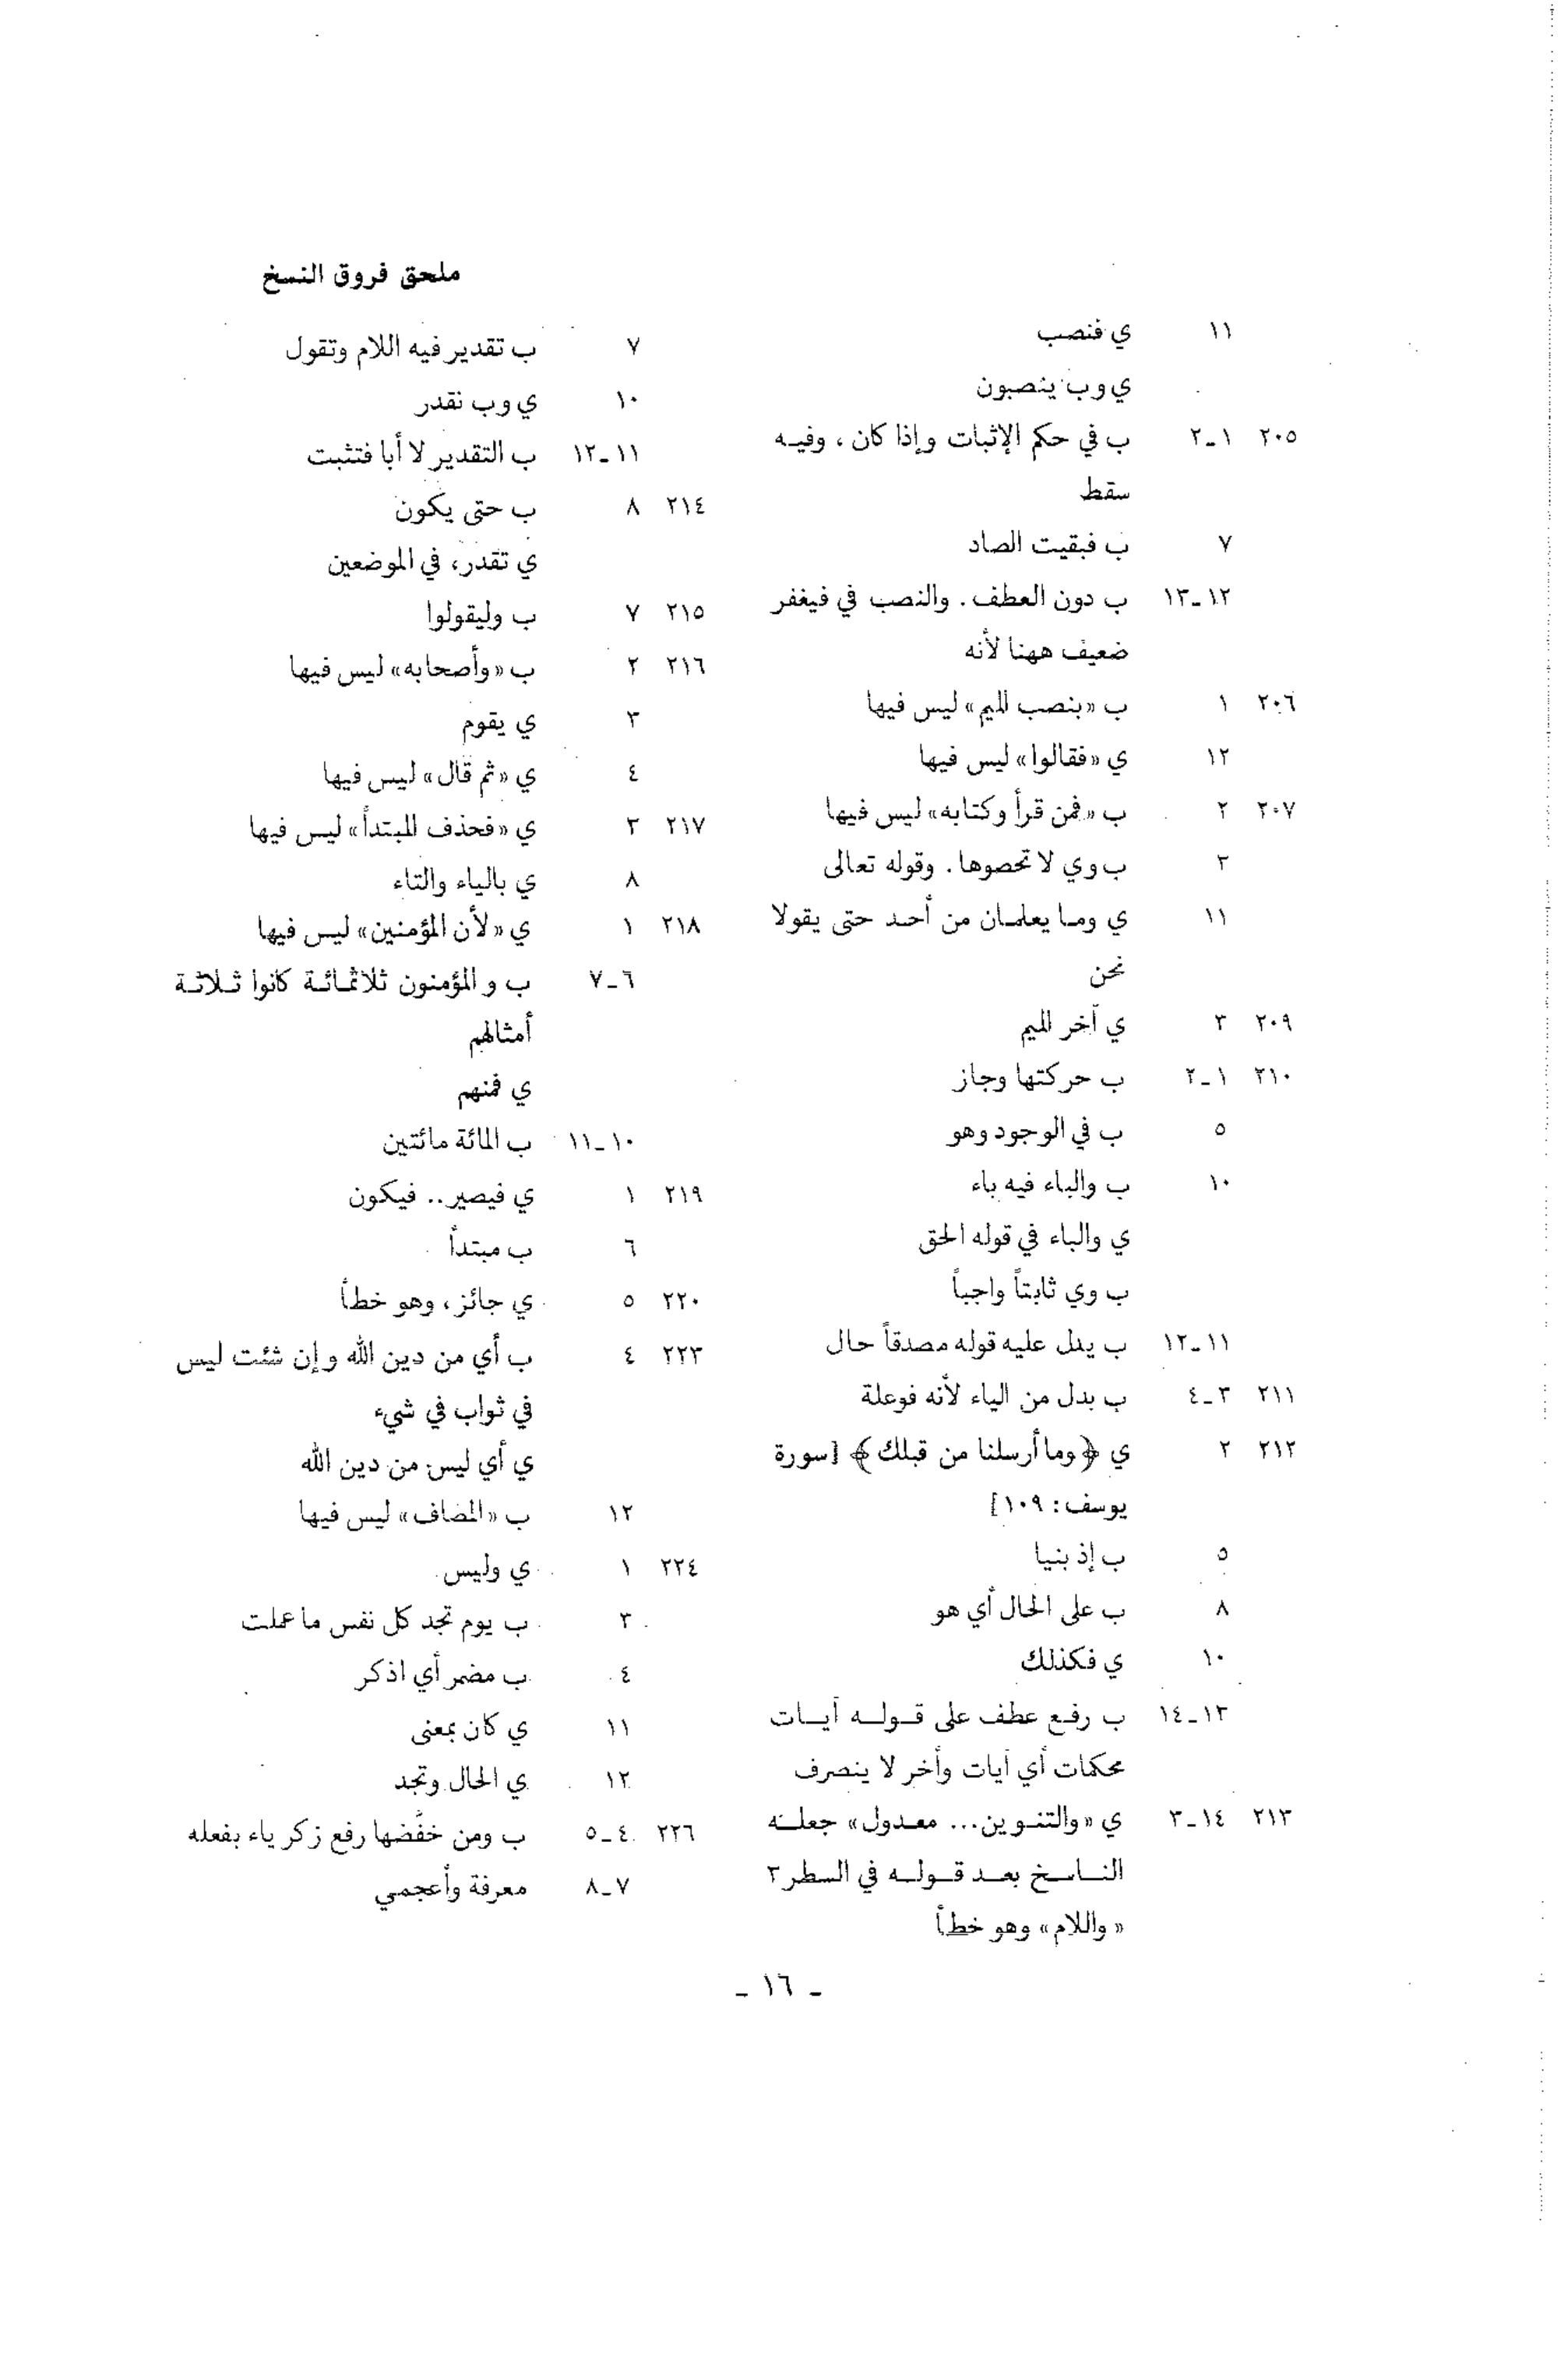 ملحق فروق النسخ
١١ ي فنصب
ي وب ينصبون
٢٠٥ ١ـ٢ ب في حكم الإثبات وإذا كان ، وفيـه
سقط
٧ ب فبقيت الصاد
١٢ـ١٣ ب دون العطف . والنصب في فيغفر
ضعيف ههنا لأنه
٢٠٦ ١ ب «بنصب الميم» ليس فيها
١٢ ي «فقالوا» ليس فيها
٢٠٧ ٢ ب «فمن قرأ وكتابه» ليس فيها
٣ ب وي لا تحصوها . وقوله تعالى
١١ ي ومـا يعلمـان من أحـد حتى يقولا
نحن
٢٠٩ ٣ ي آخر الميم
٢١٠ ١ـ٢ ب حركتها وجاز
٥ ب في الوجود وهو
١٠ ب والباء فيه باء
ي والباء في قوله الحق
ب وي ثابتاً واجباً
١١ـ١٢ ب يدل عليه قوله مصدقاً حال
٢١١ ٣ـ٤ ب بدل من الياء لأنه فوعلة
٢١٢ ٢ ي ﴿وما أرسلنا من قبلك﴾ [سورة
يوسف : ١٠٩]
٥ ب إذ بنيا
٨ ب على الحال أي هو
١٠ ي فكذلك
١٣ـ١٤ ب رفـع عطف على قـولـه آيـات
محكمات أي آيات وأخر لا ينصرف
٢١٣ ١٤ـ٣ ي «والتنـوين... معـدول» جعلـه
النـاسـخ بعـد قـولـه في السطر ٢
«واللام» وهو خطأ
٧ ب تقدير فيه اللام وتقول
١٠ ي وب نقدر
١١ـ١٢ ب التقدير لا أبا فتثبت
٢١٤ ٨ ب حتى يكون
ي تقدر، في الموضعين
٢١٥ ٧ ب وليقولوا
٢١٦ ٢ ب «وأصحابه» ليس فيها
٣ ي يقوم
٤ ي «ثم قال» ليس فيها
٢١٧ ٣ ي «فحذف المبتدأ» ليس فيها
٨ ي بالياء والتاء
٢١٨ ١ ي «لأن المؤمنين» ليس فيها
٦ـ٧ ب و المؤمنون ثلاثمـائـة كانوا ثـلاثـة
أمثالهم
ي فمنهم
١٠ـ١١ ب المائة مائتين
٢١٩ ١ ي فيصير.. فيكون
٦ ب مبتدأ
٢٢٠ ٥ ي جائز ، وهو خطأ
٢٢٣ ٤ ب أي من دين الله وإن شئت ليس
في ثواب في شيء
ي أي ليس من دين الله
١٢ ب «المضاف» ليس فيها
٢٢٤ ١ ي وليس
٣ ب يوم تجد كل نفس ما عملت
٤ ب مضمر أي اذكر
١١ ي كان بمعنى
١٢ ي الحال وتجد
٢٢٦ ٤ـ٥ ب ومن خفّضها رفع زكرياء بفعله
٧ـ٨ معرفة وأعجمي
ـ ١٦ ـ